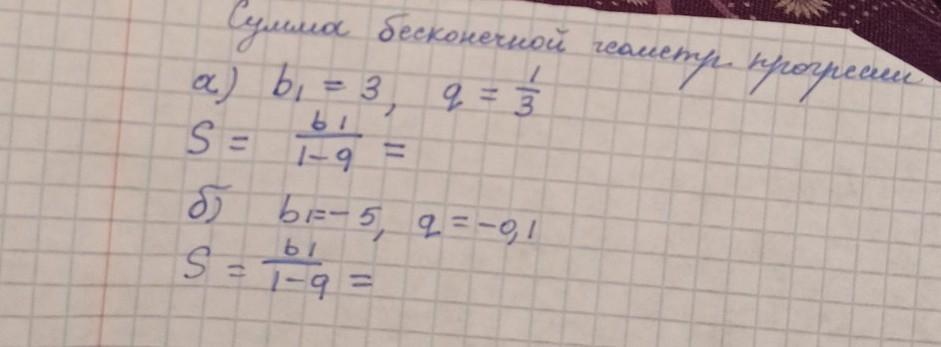 Сумма бесконечной геометр. прогрессии
а) b₁ = 3, q = 1/3
S = b₁/1-q =
б) b₁=-5, q=-0,1
S = b₁/1-q =